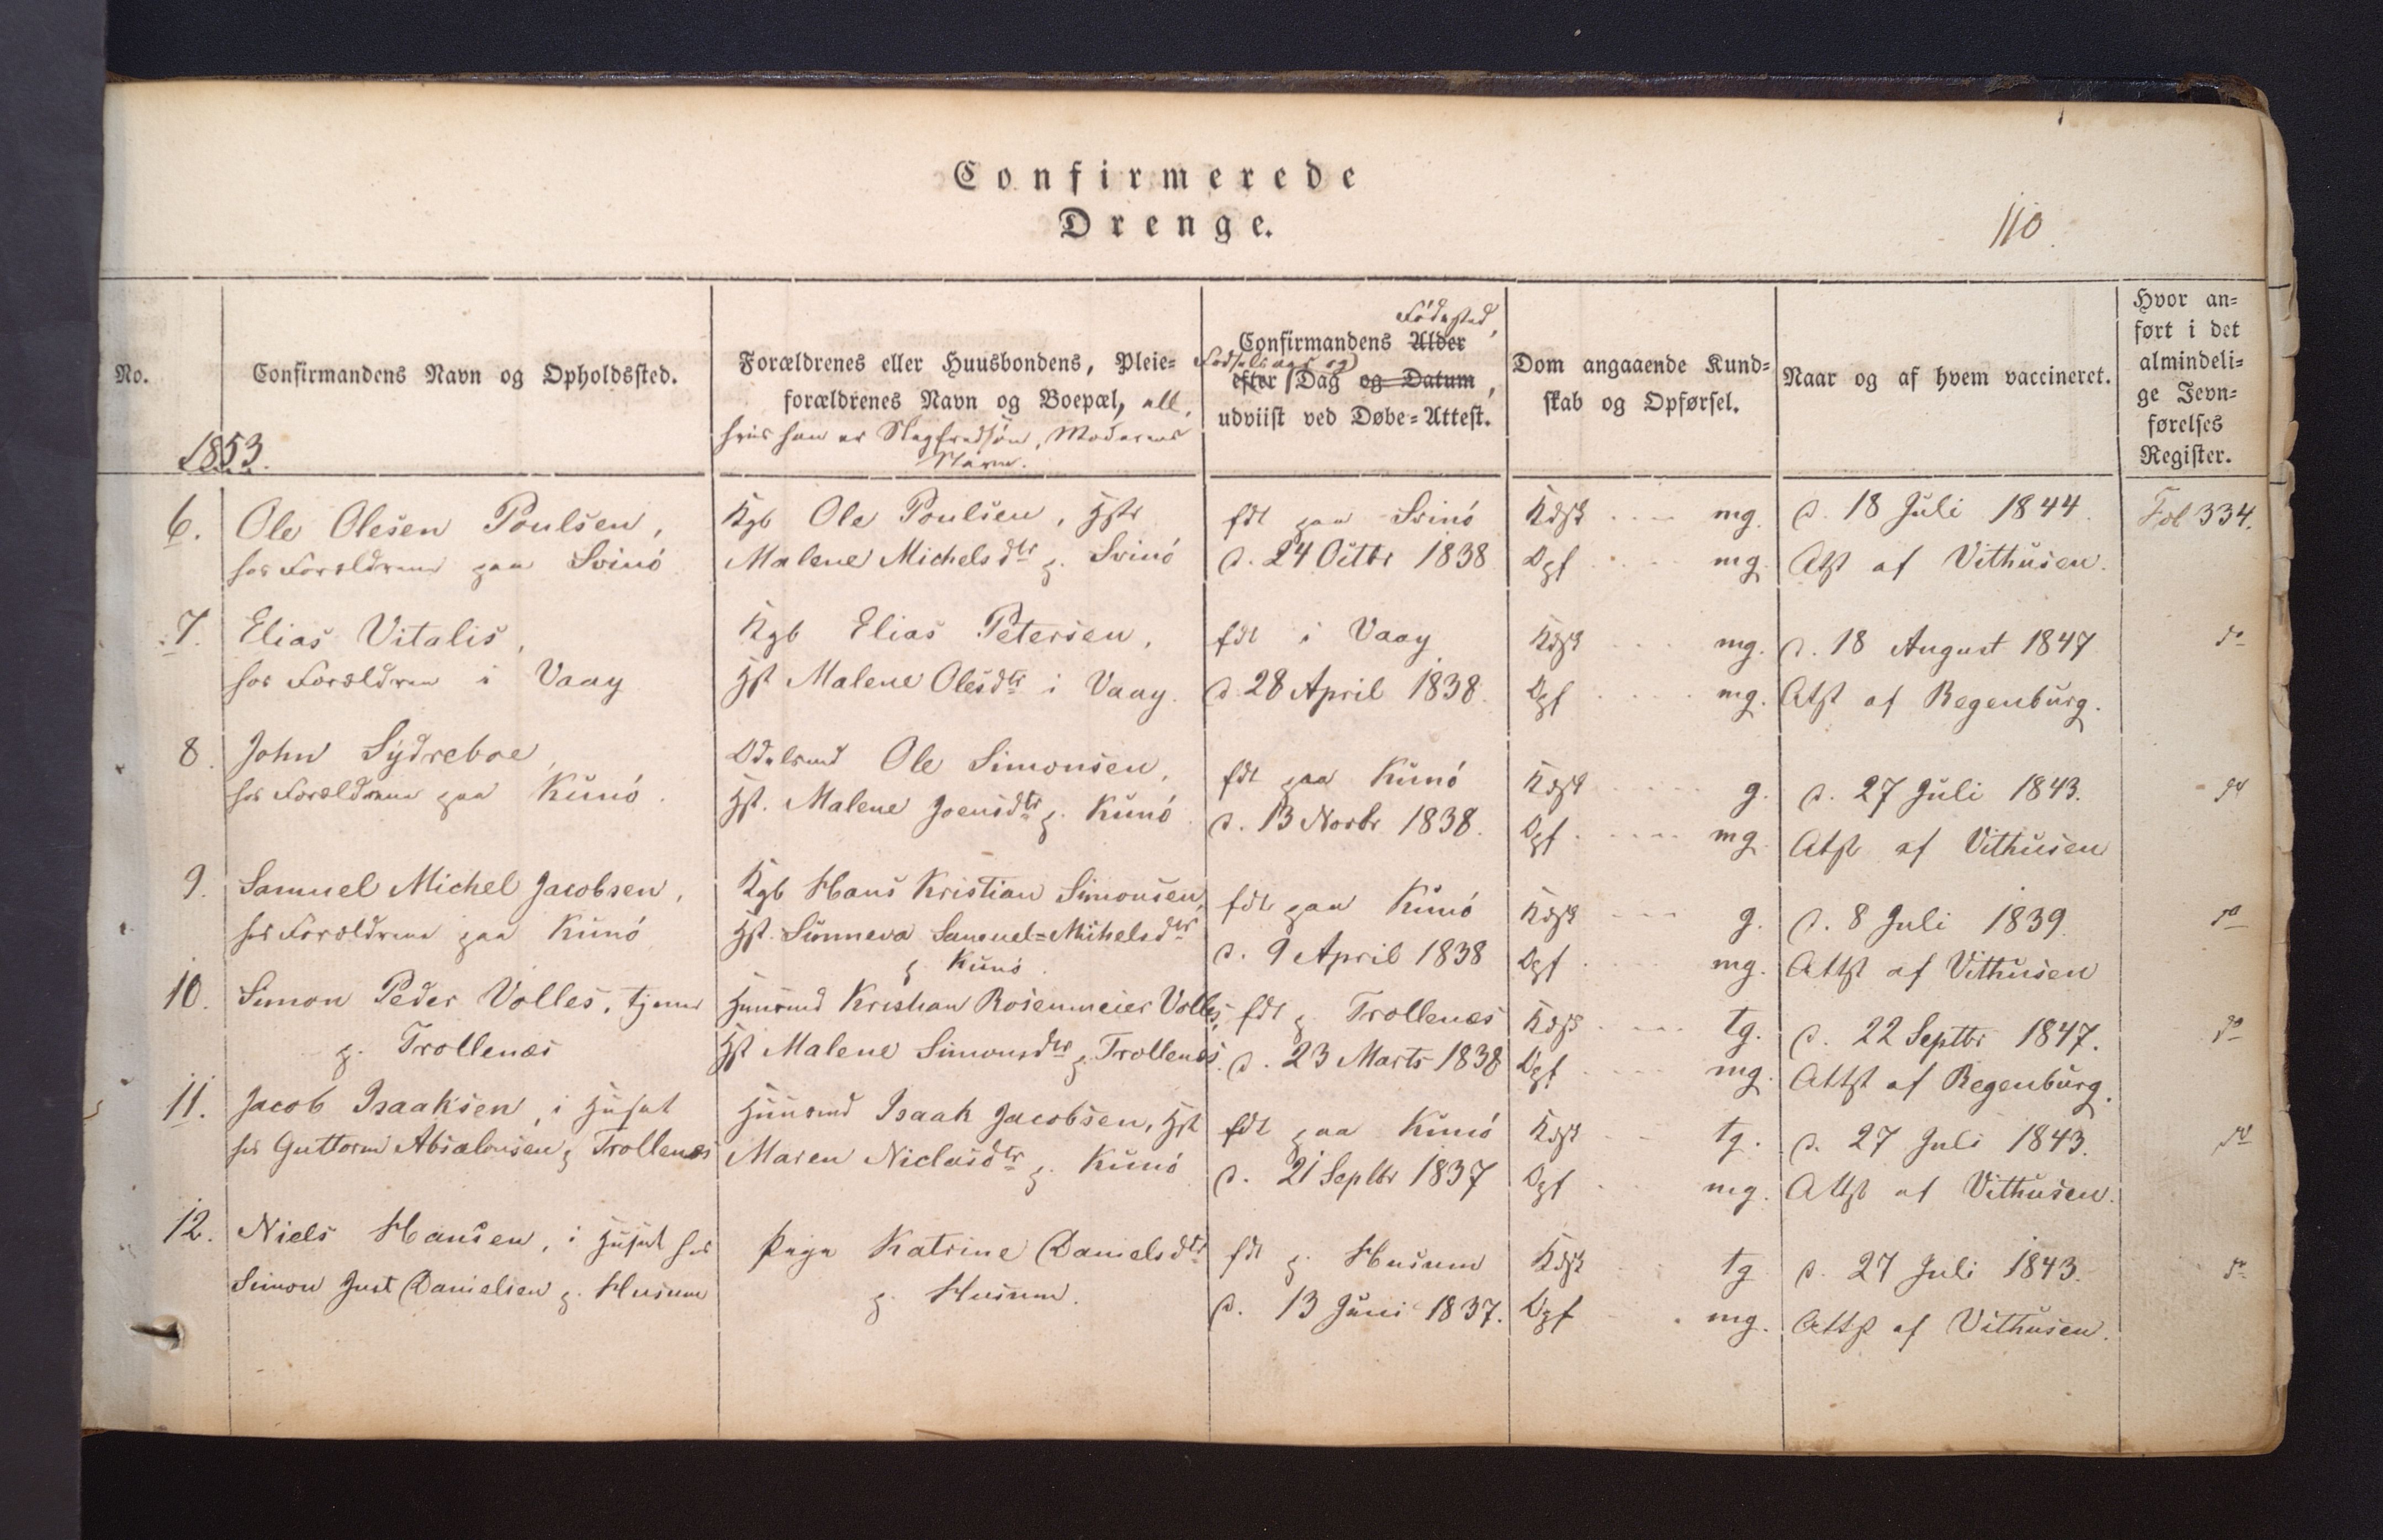 Confirmerede
Drenge.
110.
No.
1853.
Confirmandens Navn og Opholdssted.
Forældrenes eller Huusbondens, Pleie=
forældrenes Navn og Boepæl, ell.
hvis han er Slegfredsön, Moderens
Navn.
Födested,
Confirmandens Alder
Födselsaar og
efter Dag og Datum,
udviist ved Døbe=Attest.
Dom angaaende Kund=
skab og Opførsel.
Naar og af hvem vaccineret.
Hvor an=
ført i det
almindeli=
ge Jevn=
førelses
Register.
6. Ole Olesen Poulsen,
hos Forældrene paa Svinö
Kgb Ole Poulsen, Hstr
Malene Michelsdtr p. Svinö
fdt paa Svinö
d. 24 Octbr 1838
Kdsk mg.
Opf mg.
d. 18 Juli 1844.
Atst af Vithusen.
Fol 334.
7. Elias Vitalis,
hos Forældrene i Vaag
Kgb Elias Petersen,
Hst Malene Olesdtr i Vaag.
fdt i Vaag
d. 28 April 1838.
Kdsk mg.
Opf mg.
d. 18 August 1847
Atst af Regenburg.
do
8. John Sydreboe,
hos Forældrene paa Kunö.
Odelsmd Ole Simonsen,
Hst. Malene Joensdtr p. Kunö.
fdt paa Kunö
d. 13 Novbr 1838.
Kdsk g.
Opf mg.
d. 27 Juli 1843.
Atst af Vithusen
do
9. Samuel Michel Jacobsen,
hos Forældrene paa Kunö
Kgb Hans Kristian Simonsen,
Hst. Sunneva Samuel=Michelsdtr
p. Kunö.
fdt paa Kunö
d. 9 April 1838
Kdsk g.
Opf mg.
d. 8 Juli 1839.
Attst af Vithusen
do
10. Simon Peder Volles, tjener
p. Trollenæs
Huusmd Kristian Rosenmeier Volles,
Hst Malene Simonsdtr p. Trollenæs.
fdt p. Trollenæs
d. 23 Marts 1838
Kdsk tg.
Opf mg.
d. 22 Septbr 1847.
Attst af Regenburg.
do
11. Jacob Isaaksen, i Huset
hos Guttorm Absalonsen p Trollenæs
Huusmd Isaak Jacobsen, Hst
Maren Niclasdtr p. Kunö
fdt paa Kunö
d. 21 Septbr 1837
Kdsk tg.
Opf mg.
d. 27 Juli 1843.
Attst af Vithusen.
do
12. Niels Hansen, i Huset hos
Simon Just Danielsen p. Husum
Pige Katrine Danielsdtr
p. Husum.
fdt p. Husum
d. 13 Juni 1837.
Kdsk tg
Opf mg.
d. 27 Juli 1843.
Attst af Vithusen.
do